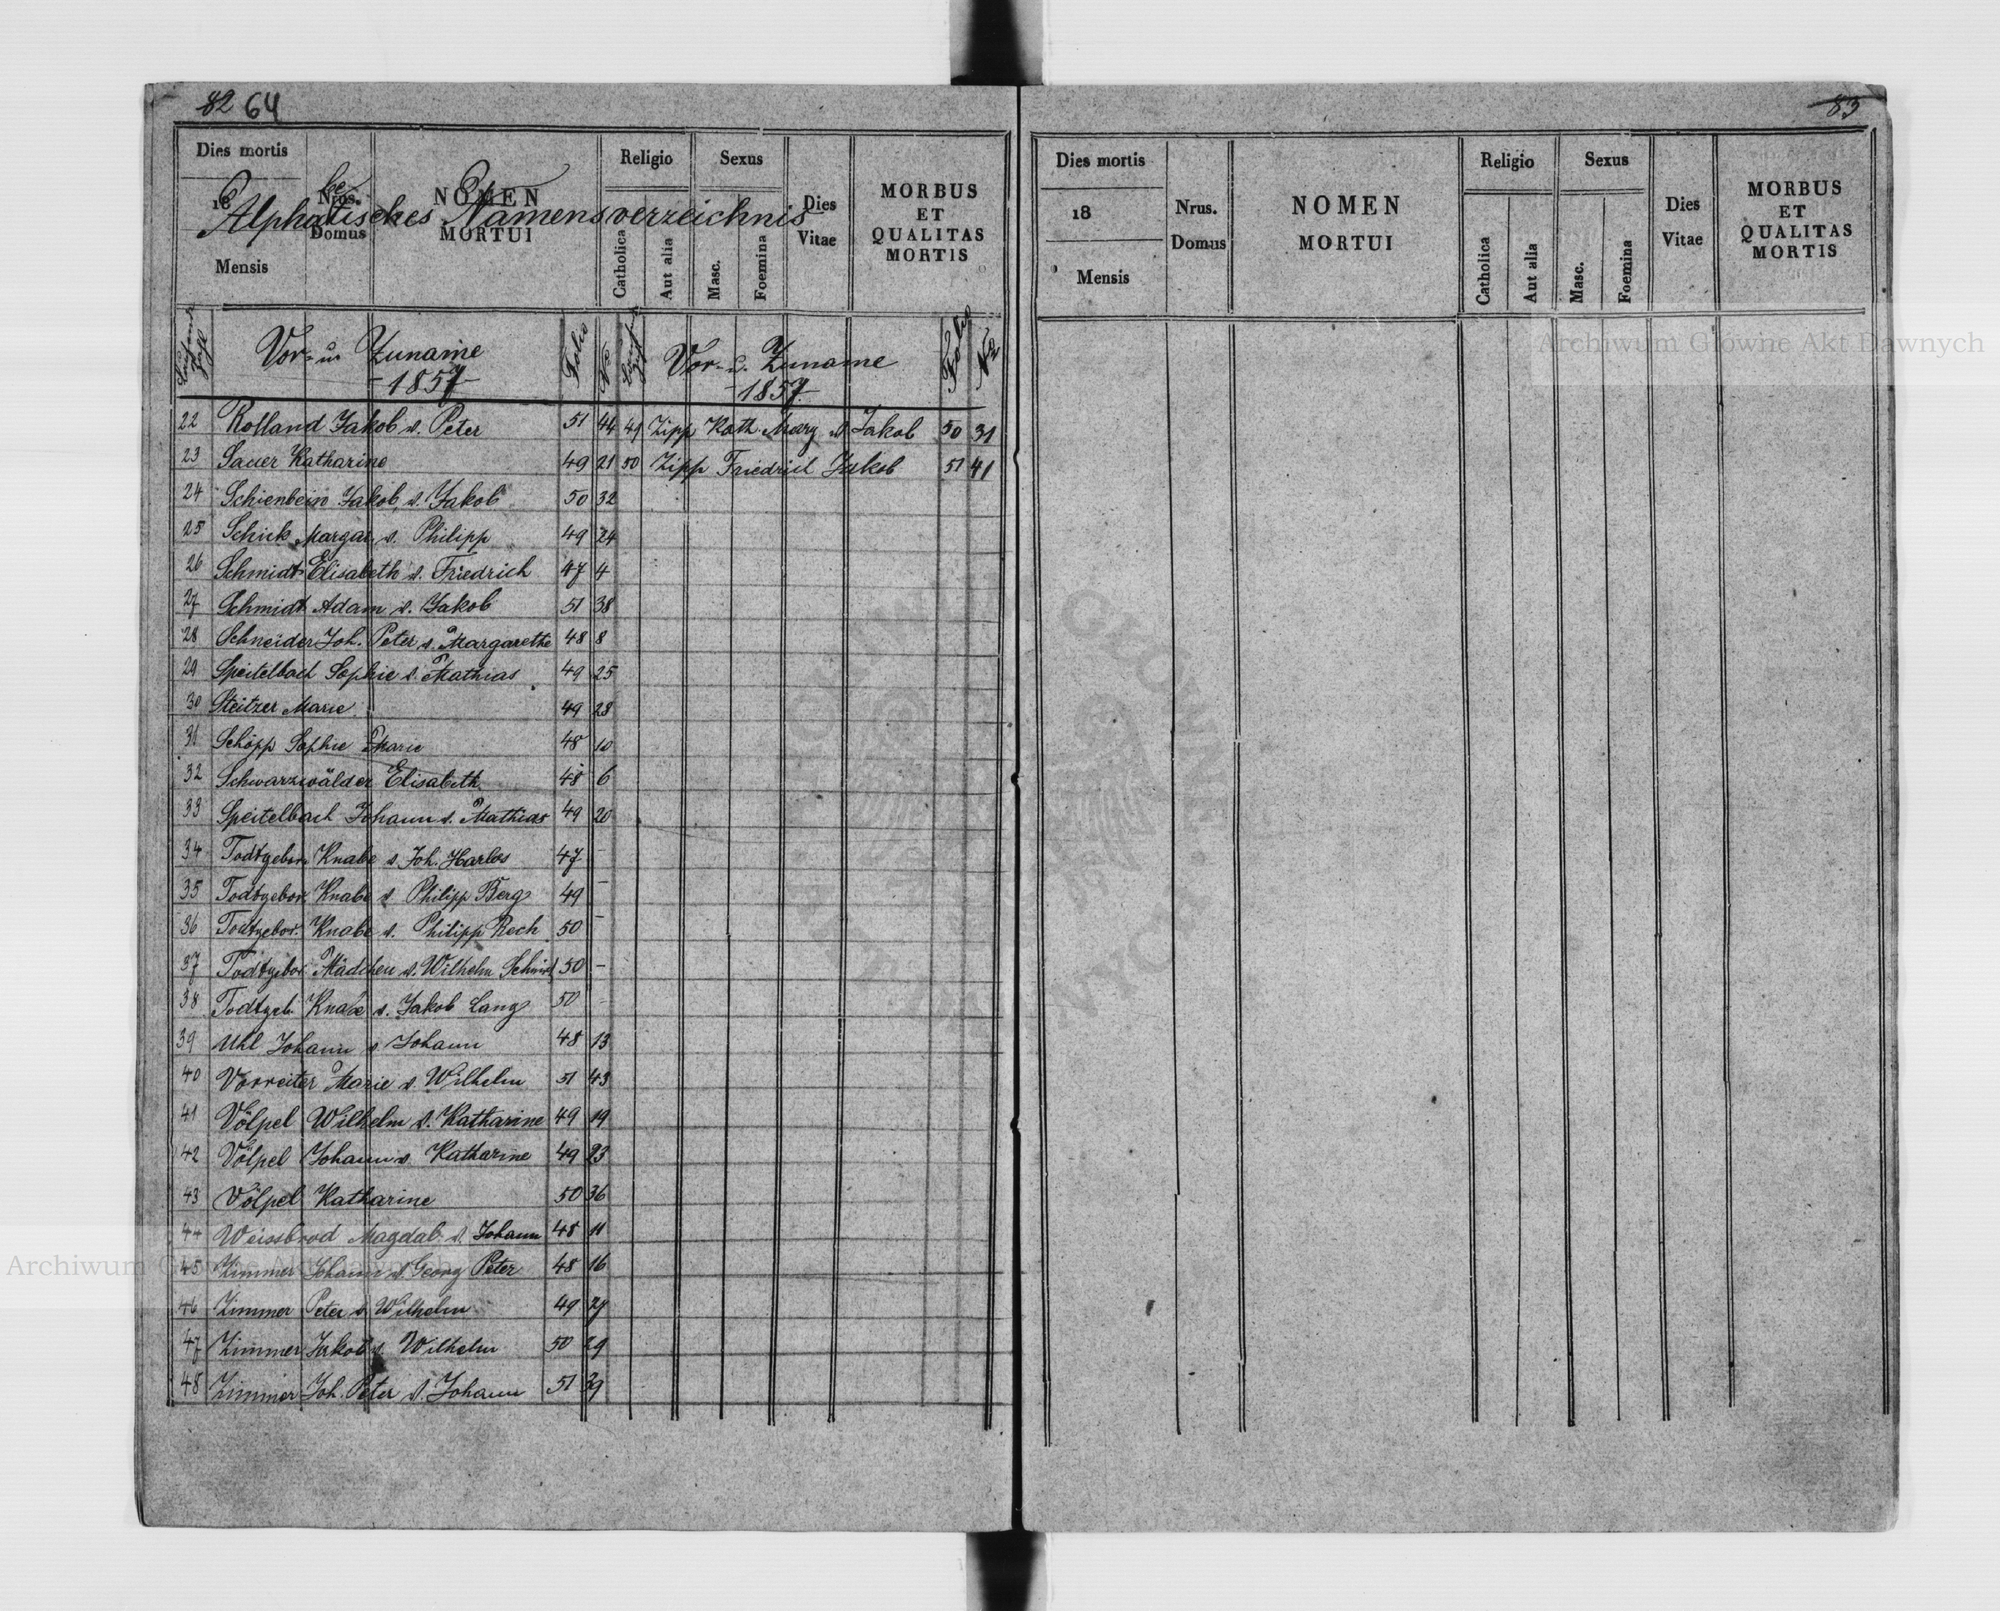 82 64
Dies mortis
18
Mensis
Nrus. Domus
NOMEN MORTUI
Religio
Catholica
Aut alia
Sexus
Masc.
Foemina
Dies Vitae
MORBUS ET QUALITAS MORTIS
Alphabetisches Namensverzeichnis
Laufende Zahl
Vor- u. Zuname
-1857-
Folio
No
Vor- u. Zuname
-1857-
Folio
No
22 Rolland Jakob v. Peter 51 44
23 Sauer Katharine 49 21
24 Schienbein Jakob, v. Jakob 50 32
25 Schick Margar. v. Philipp 49 24
26 Schmidt Elisabeth v. Friedrich 47 4
27 Schmidt Adam v. Jakob 51 38
28 Schneider Joh. Peter v. Margarethe 48 8
29 Speitelbach Sophie v. Mathias 49 25
30 Steitzer Marie 49 28
31 Schöpp Sophie Marie 48 10
32 Schwarzwälder Elisabeth 48 6
33 Speitelbach Johann v. Mathias 49 20
34 Todtgebor. Knabe v. Joh. Harlos 47 -
35 Todtgebor. Knabe v. Philipp Berg 49 -
36 Todtgebor. Knabe v. Philipp Rech 50 -
37 Todtgebor. Mädchen v. Wilhelm Schmid 50 -
38 Todtgeb. Knabe v. Jakob Lang 50 -
39 Uhl Johann v. Johann 48 13
40 Vorreiter Marie v. Wilhelm 51 43
41 Völpel Wilhelm v. Katharine 49 19
42 Völpel Johann v. Katharine 49 23
43 Völpel Katharine 50 36
44 Weissbrod Magdal. v. Johann 48 11
45 Zimmer Johann v. Georg Peter 48 16
46 Zimmer Peter v. Wilhelm 49 27
47 Zimmer Jakob v. Wilhelm 50 29
48 Zimmer Joh. Peter v. Johann 51 39
49 Zipp Kath. Marg. v. Jakob 50 31
50 Zipp Friedrich Jakob 51 41
83
Dies mortis
18
Mensis
Nrus. Domus
NOMEN MORTUI
Religio
Catholica
Aut alia
Sexus
Masc.
Foemina
Dies Vitae
MORBUS ET QUALITAS MORTIS
Archiwum Główne Akt Dawnych
Archiwum Główne Akt Dawnych